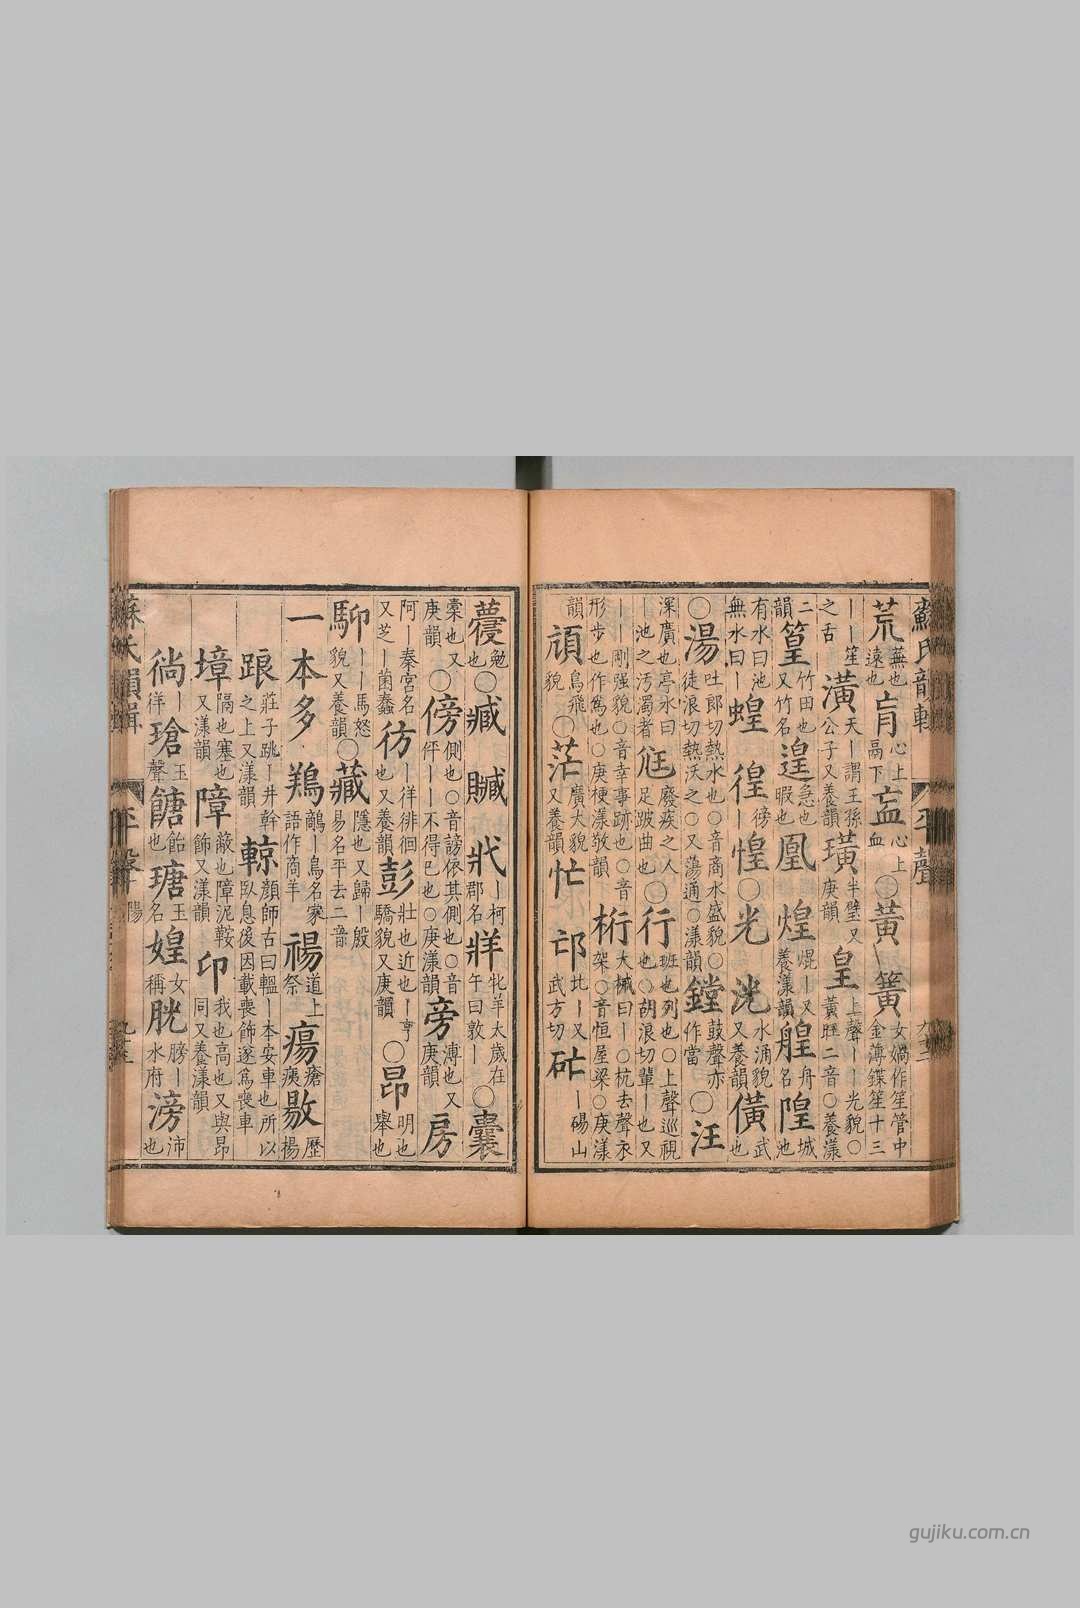 荒蕪也遠也肓心上鬲下衁心上血○黃簧女媧作笙管中金薄鍱笙十三
之舌潢天丨謂王孫公子又養韻璜半璧又庚韻皇上聲丨丨光貌○黃旺二音○養漾
韻篁竹田也又竹名遑急也暇也凰煌焜丨又養漾韻艎舟名隍城池
有水曰池無水曰丨蝗徨傍丨惶○光洸水涌貌又養韻僙武也
○湯吐郎切熱水也○音商水盛貌○又徒浪切熱沃之○又蕩通○漾韻鏜鼓聲亦作當○汪
深廣也亭水曰丨池之汚濁者尪廢疾之人足跛曲也○行班也列也○上聲巡視也○胡浪切輩丨也又
丨丨剛強貌○音幸事跡也○音形步也作爲也○庚梗漾敬韻桁大械曰丨○杭去聲衣架○音恒屋梁○庚漾
韻頏鳥飛貌○茫廣大貌又養韻忙邙北丨又武方切硭丨碭山
蘉勉也○臧贓牂丨柯郡名牂牝羊太歲在午曰敦丨○囊
橐也又庚韻○傍側也○音謗依其側也○音伻丨丨不得已也○庚漾韻旁溥也又庚韻房
阿丨秦宮名又芝丨菌蠢彷丨徉徘徊也又養韻彭壯也近也丨亨驕貌又庚韻○昂明也舉也
䭹丨丨馬怒貌又養韻○藏隱也又歸丨殷易名平去二音
一本多鶐鸍丨鳥名家語作商羊禓道上祭瘍瘡痍敭歷揚
踉莊子跳丨井幹之上又漾韻輬顏師古曰轀丨本安車也所以臥息後因載喪飾遂爲喪車
墇隔也塞也又漾韻障蔽也障泥鞍飾又漾韻卬我也高也又與昂同又養漾韻
徜丨徉瑲玉聲餹飴也瑭玉名媓女稱胱膀丨水府滂沛也
蘇氏韻輯
平聲
陽
九十三
gujiku.com.cn